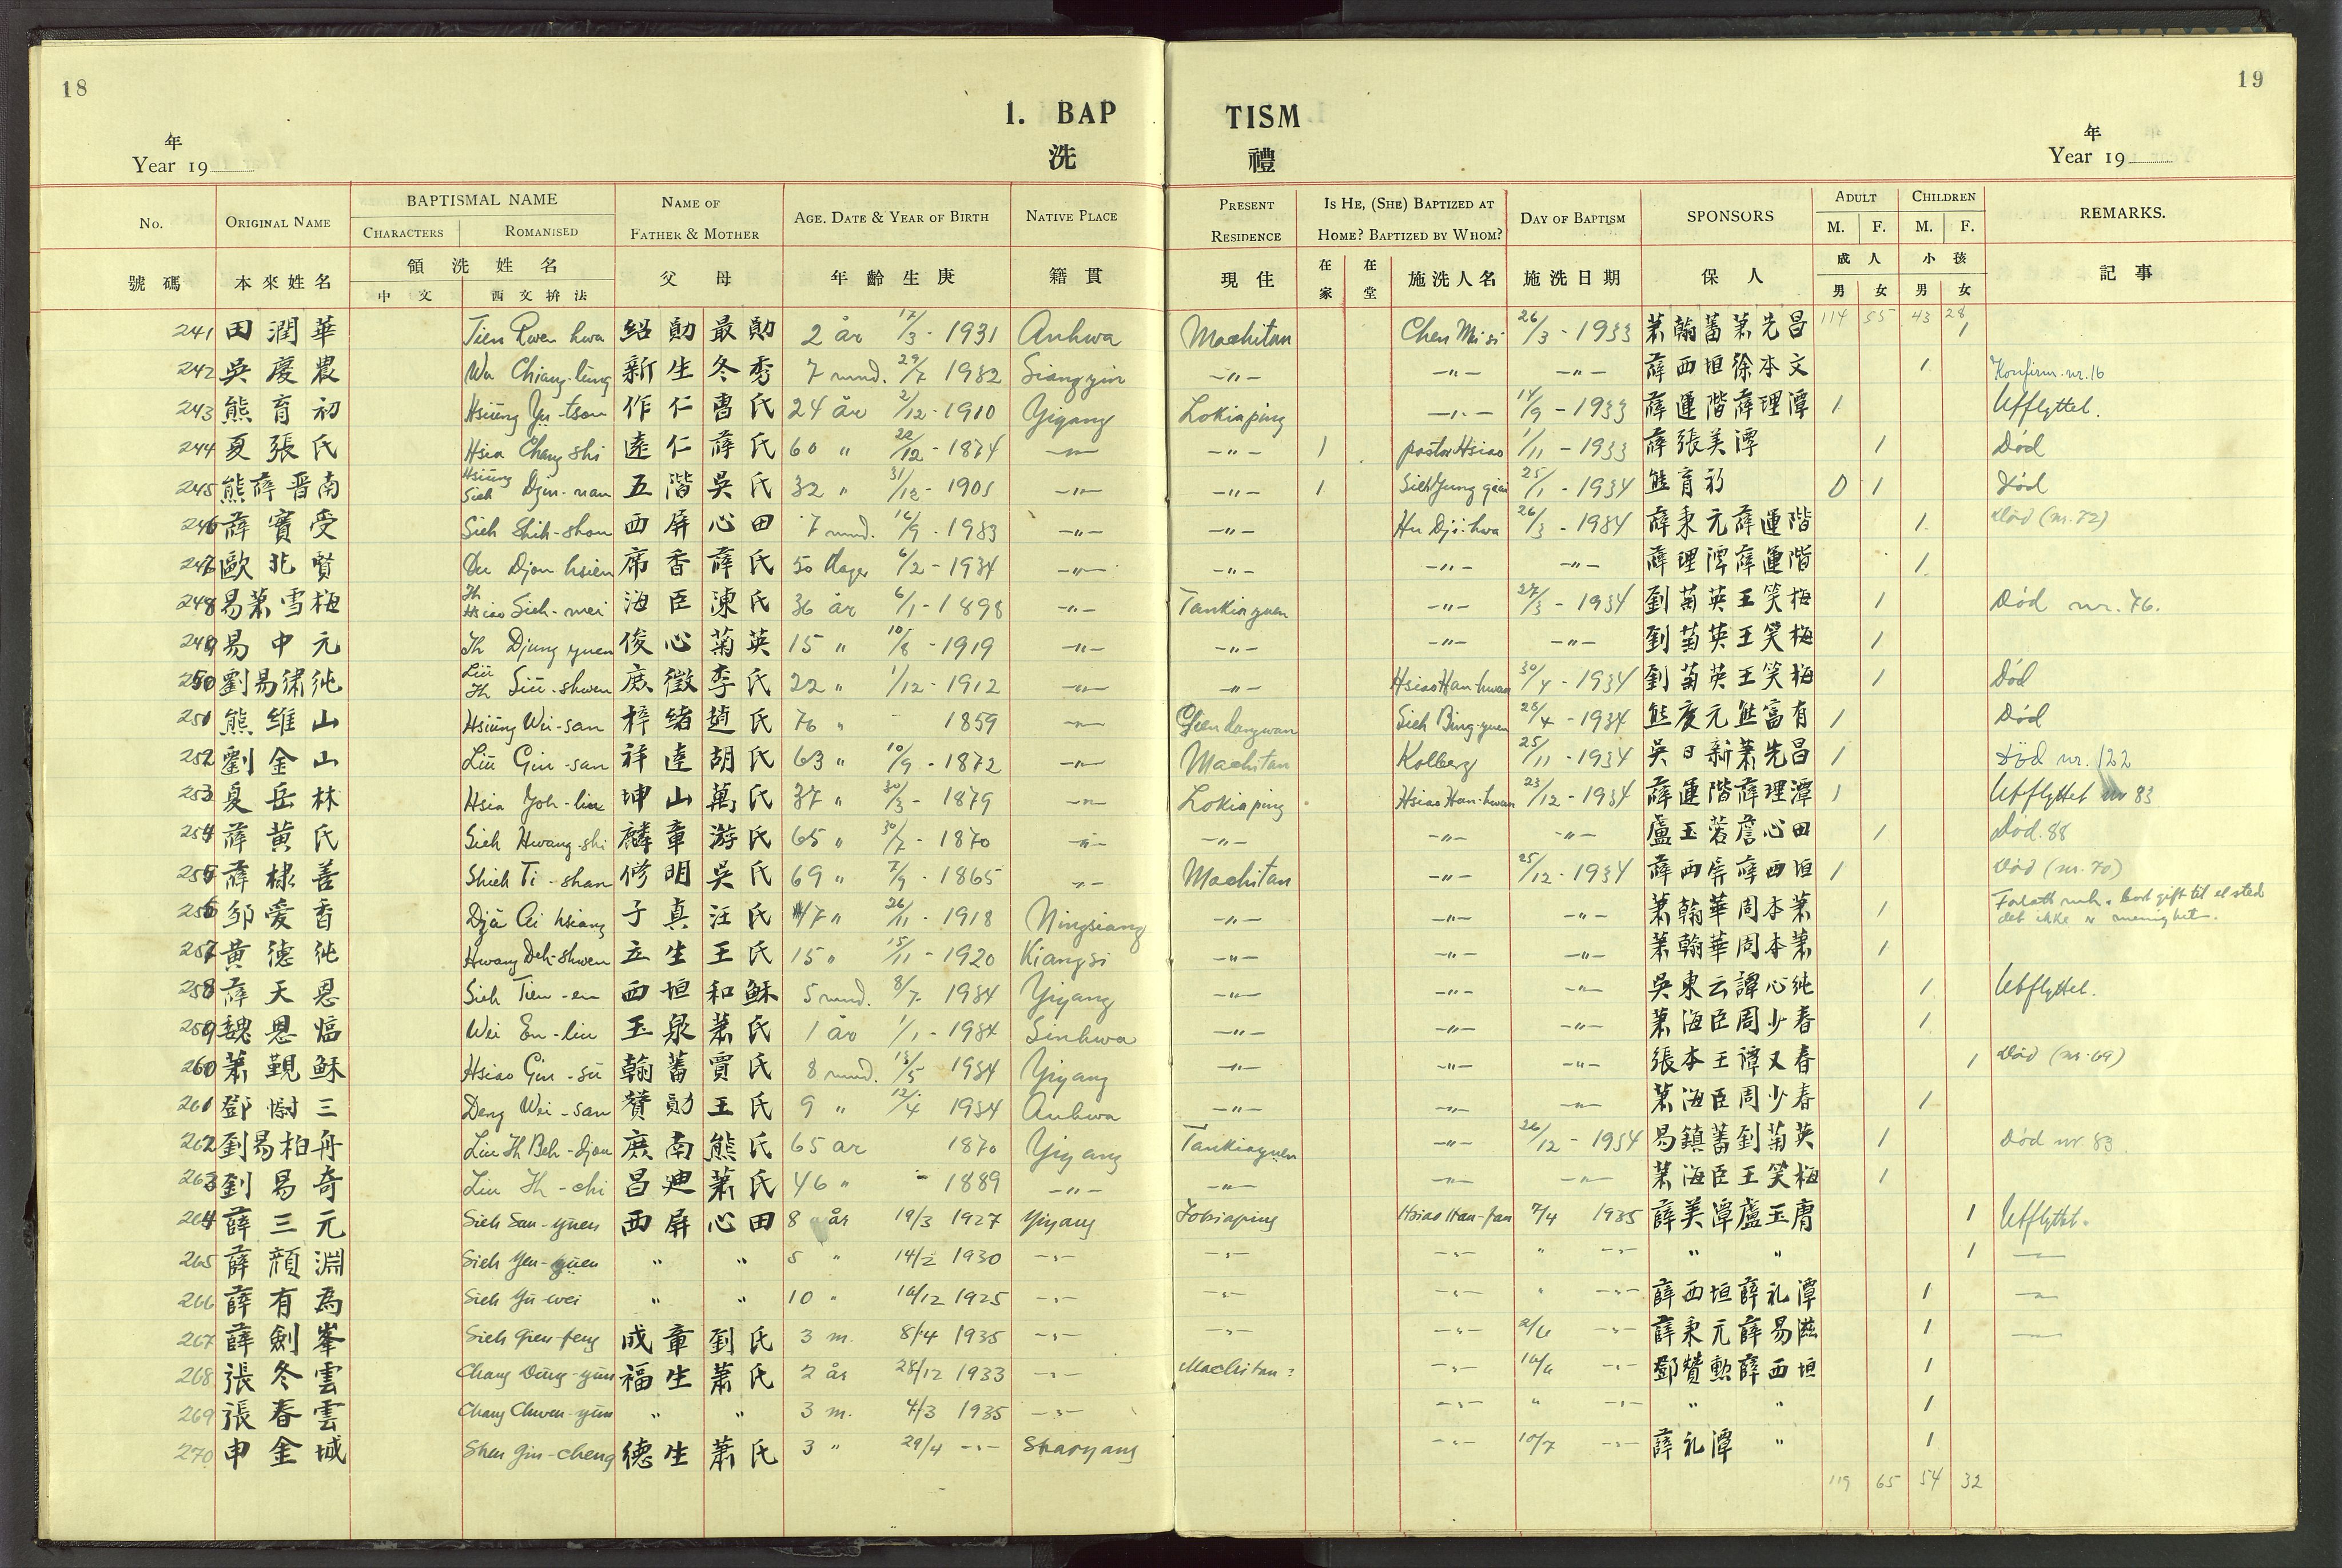 18
19
1. BAPTISM
洗禮
年
Year 19
年
Year 19
No. ORIGINAL NAME BAPTISMAL NAME NAME OF FATHER & MOTHER AGE. DATE & YEAR OF BIRTH NATIVE PLACE PRESENT RESIDENCE IS HE, (SHE) BAPTIZED AT HOME? BAPTIZED BY WHOM? DAY OF BAPTISM SPONSORS ADULT CHILDREN REMARKS.
CHARACTERS ROMANISED M. F. M. F.
號碼 本來姓名 領洗姓名 父母 年齡生庚 籍貫 現住 在家 在堂 施洗人名 施洗日期 保人 成人 小孩 記事
中文 西文拚法 男 女 男 女
114 55 43 28
241 田潤華 Tien Rwen hwa 紹勛 最勛 2 år 17/3 - 1931 Anhwa Machitan Chen Mu si 26/3 - 1933 萧翰蕃萧先昌 1
242 吳慶農 Wu Chiang-lüng 新生 冬秀 7 mnd. 29/7 1932 Siangyin -"- -"- -"- 薛西垣徐本文 1 Konfirm. nr. 16
243 熊育初 Hsiüng Yü-tsou 作仁 曹氏 24 år 2/12 - 1910 Yiyang Lokiaping -"- 14/9 - 1933 薛運階薛理潭 1 Utflyttet.
244 夏張氏 Hsia Chang shi 遠仁 薛氏 60 " 22/12 - 1874 -"- -"- 1 pastor Hsiao 1/11 - 1933 薛張美潭 1 Død
245 熊薛晋南 Hsiüng Sieh Djin-nan 五階 吳氏 32 " 31/12 - 1901 -"- -"- 1 Sieh Yung 25/1 - 1934 熊育初 0 1 Død
246 薛寶受 Sieh Shih-shou 西屏 心田 7 mnd. 16/9 - 1933 -"- -"- Hu Dji-hwa 26/3 - 1934 薛秉元薛運階 1 Død (nr. 72)
247 歐北賢 Ou Djou hsien 席香 薛氏 50 dager 6/2 - 1934 -"- -"- -"- -"- 薛理潭薛運階 1
248 易萧雪梅 Ih Hsiao Sieh-mei 海臣 陳氏 36 år 6/1 - 1898 -"- Tankiayuen -"- 27/3 - 1934 劉菊英王笑梅 1 Død nr. 76.
249 易中元 Ih Djung yuen 俊心 菊英 15 " 10/8 - 1919 -"- -"- -"- -"- 劉菊英王笑梅 1
250 劉易肅純 Liü Ih Siü-shwen 庶徵 李氏 22 " 1/12 - 1912 -"- -"- Hsiao Han-hwan 30/4 - 1934 劉菊英王笑梅 1 Død
251 熊維山 Hsiüng Wei-san 梓緒 趙氏 76 " 1859 -"- Sieh Bing-yuen 25/4 - 1934 熊慶元熊富有 1 Død
252 劉金山 Liü Gin-san 祥達 胡氏 63 " 10/9 - 1872 -"- Machitan Kolberg 25/11 - 1934 吳日新萧先昌 1 Død nr. 122
253 夏岳林 Hsia Yoh-lin 坤山 萬氏 37 " 30/3 - 1879 -"- Lokiaping Hsiao Han-hwan 23/12 - 1934 薛運階薛理潭 1 Utflyttet nr 83
254 薛黄氏 Sieh Hwang-shi 麟章 游氏 65 " 30/7 - 1870 -"- -"- -"- -"- 盧玉若詹心田 1 Død. 88
255 薛棣善 Shieh Ti-shan 修明 吳氏 69 " 7/9 - 1865 -"- Machitan -"- 25/12 - 1934 薛西屏薛西垣 1 Død (nr. 70)
256 邹爱香 Djü Ai hsiang 子真 汪氏 17 " 26/11 - 1918 Ningsiang -"- -"- -"- 萧翰華周本萧 1 bort gift til et sted
det ikke er menighet.
257 黄德純 Hwang Deh-shwen 立生 王氏 15 " 15/11 - 1920 Kiangsi -"- -"- -"- 萧翰華周本萧 1
258 薛天恩 Sieh Tien-en 西垣 和稣 5 mnd. 8/7 - 1934 Yiyang -"- -"- -"- 吳東云譚心純 1 Utflyttet.
259 魏恩临 Wei En-lin 玉泉 萧氏 1 år 1/1 - 1934 Sinhwa -"- -"- -"- 萧海臣周少春 1
260 萧觐稣 Hsiao Gin-sü 翰蕃 賈氏 8 mnd. 13/5 1934 Yiyang -"- -"- -"- 張本王譚又春 1 Død (nr. 69)
261 鄧尉三 Deng Wei-san 贊勛 王氏 9 " 12/4 1934 Anhwa -"- -"- -"- 萧海臣周少春 1
262 劉易柏舟 Liu Ih Beh-djou 庶南 熊氏 65 år 1870 Yiyang Tankiayuen -"- 26/12 - 1934 易鎮蕃劉菊英 1 Død nr 83
263 劉易奇 Liu Ih-chi 昌廸 萧氏 46 " - 1889 -"- -"- -"- -"- 萧海臣王笑梅 1
264 薛三元 Sieh San-yüen 西屏 心田 8 år 19/3 1927 Yiyang Lokiaping Hsiao Han-fan 7/4 1935 薛美潭盧玉膚 1 Utflyttet.
265 薛顏淵 Sieh Yen-yüen " " 5 " 14/2 1930 -"- -"- -"- " -"- " " 1 -"-
266 薛有為 Sieh Yü-wei " " 10 " 14/12 1925 -"- -"- -"- " -"- 薛西垣薛礼潭 1 -"-
267 薛劍峯 Sieh Gien-feng 成章 劉氏 3 m. 8/4 1935 -"- -"- -"- 2/6 -"- 薛秉元薛易滋 1 -"-
268 張冬雲 Chang Dung-yün 福生 萧氏 2 år 28/12 1933 -"- Machitan -"- 16/6 -"- 鄧贊勲薛西垣 1
269 張春雲 Chang Chwen-yün " " 3 m. 4/3 1935 -"- -"- " -"- " " 1
270 申金城 Shen Gin-cheng 德生 萧氏 3 " 29/4 -"- Shaoyang -"- 10/7 -"- 薛礼潭 " 1
119 65 54 32